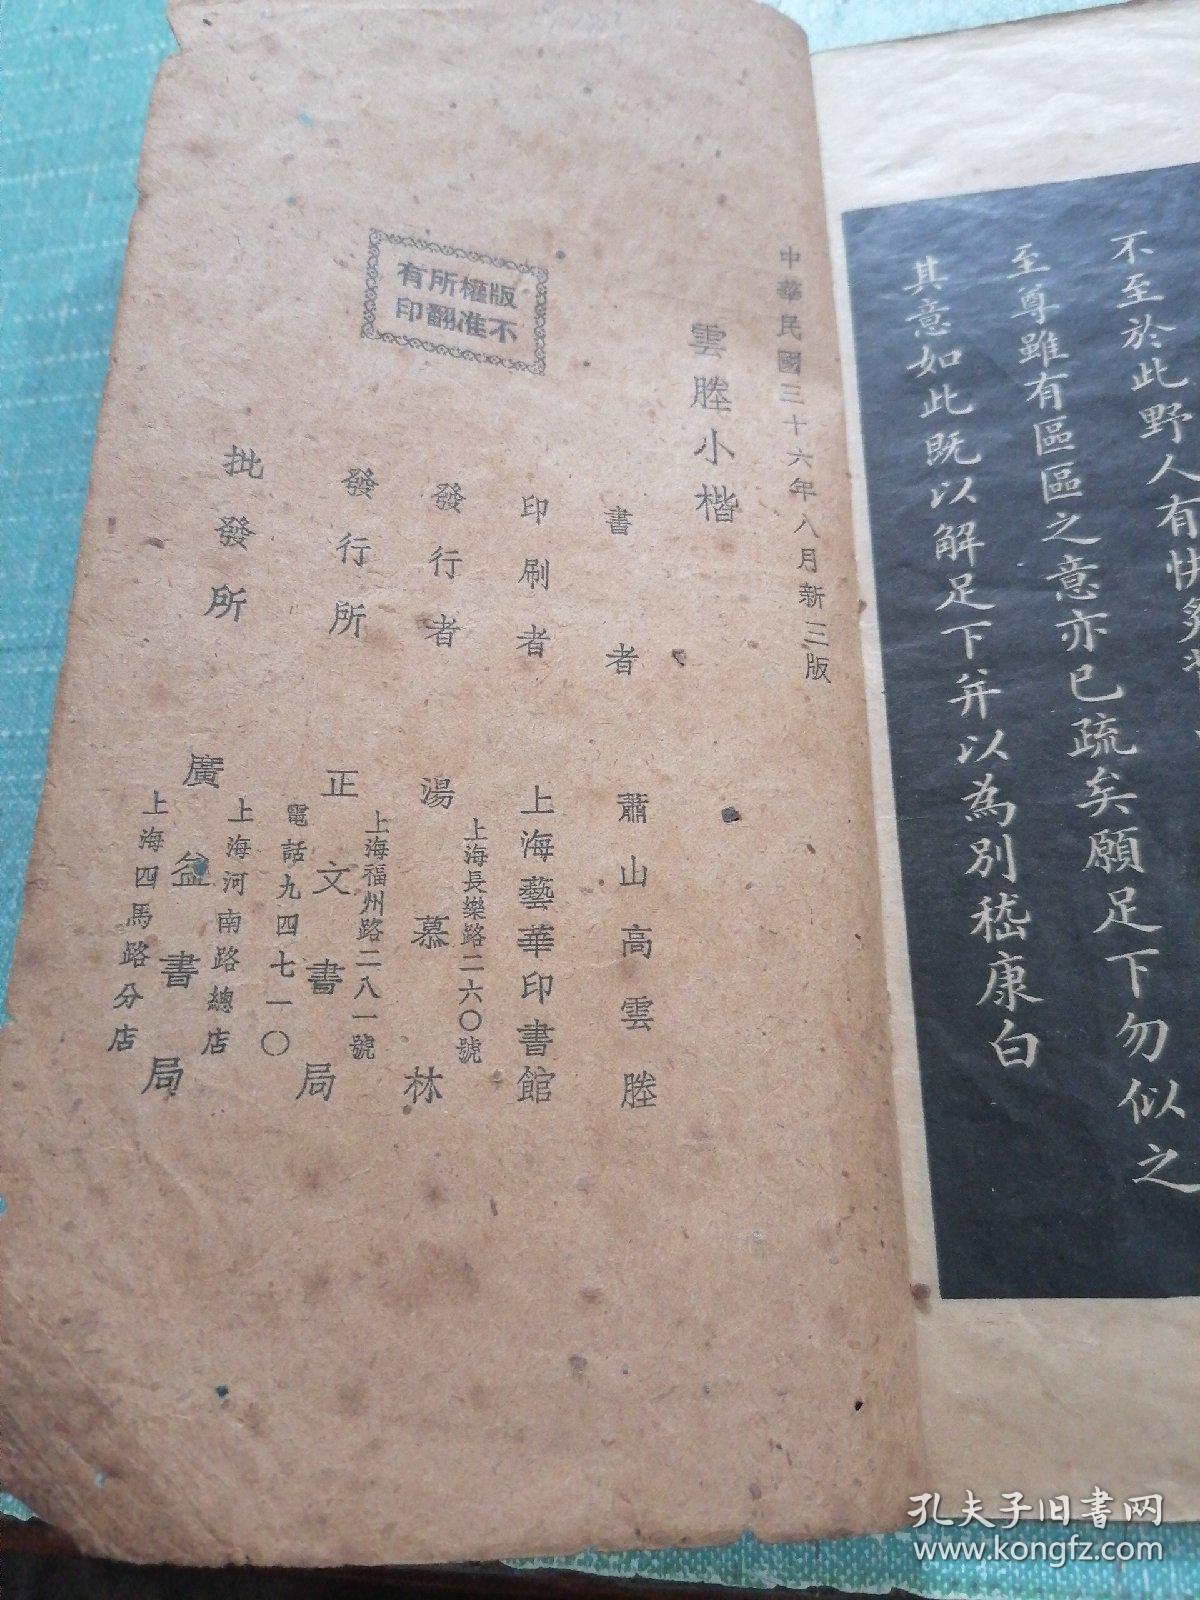 不至於此野人有快
至尊雖有區區之意亦已疏矣願足下勿似之
其意如此既以解足下并以為別嵇康白
中華民國三十六年八月新三版
雲塍小楷
書者 蕭山高雲塍
印刷者 上海藝華印書館
上海長樂路二六〇號
發行者 湯慕林
上海福州路二八一號
發行所 正文書局
電話九四七一〇
上海河南路總店
批發所 廣益書局
上海四馬路分店
版權所有
不准翻印
孔夫子旧书网
www.kongfz.com